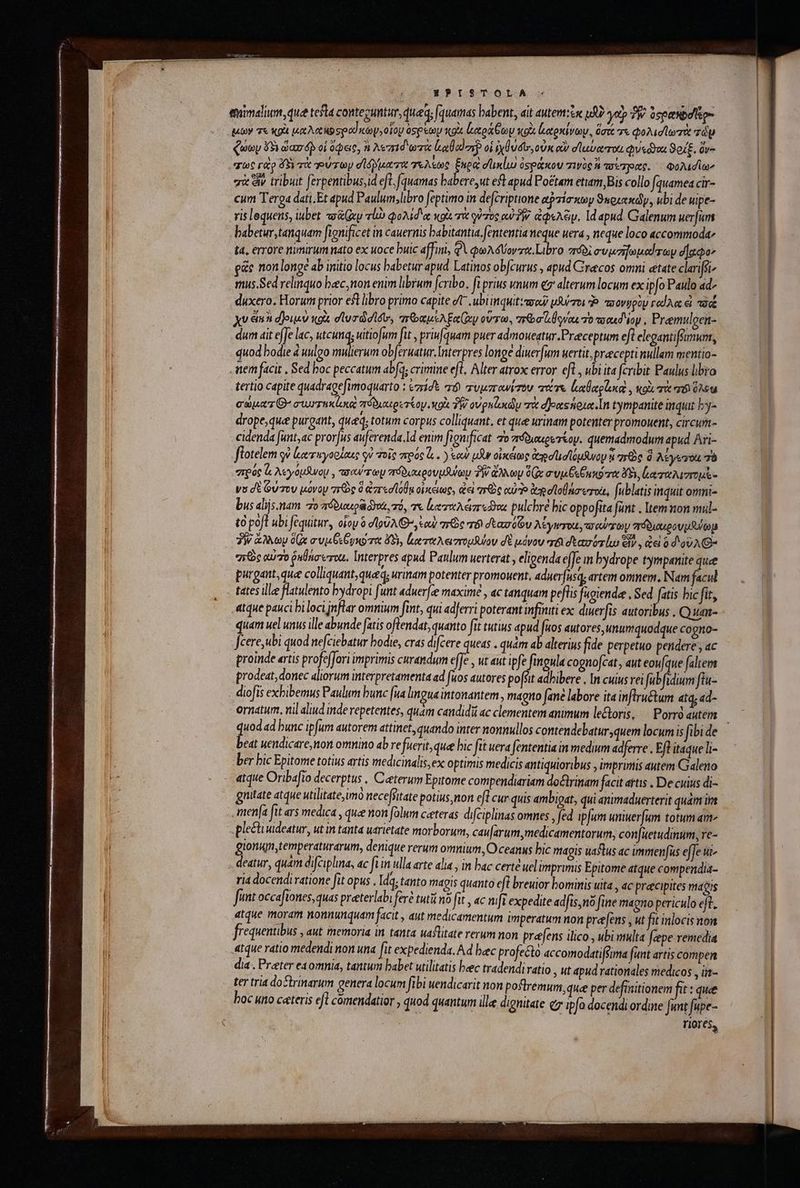 EPISTOLA
animalium, quæ testa conteguntur, quæq; squamas habent, ait autem: ἐκ μὲν γὰρ τῶν ὀστρακοδέρ-
μων τε καὶ μαλακοστράκων, οἷον ὀστρέων καὶ καράβων καὶ καρκίνων, ὅσα τε φολιδωτὰ τῶν
ζώων ἐστὶ ὥσπερ οἱ ὄφεις, ἢ λεπιδωτὰ καθάπερ οἱ ἰχθύες, οὐκ ἂν δύναιτο φύεσθαι θρίξ. ὄν-
τως γὰρ ἐστὶ τὰ τούτων δέρματα τελέως ξηρὰ δίκην ὀστράκου τινὸς ἢ πέτρας. φολιδω-
τὰ tribuit serpentibus, id est. squamas habere, ut est apud Poëtam etiam, Bis collo squamea cir-
cum Terga dati. Et apud Paulum, libro septimo in descriptione ἀρτίσκων θηριακῶν, ubi de uipe-
ris loquens, iubet τὴν φολίδα καὶ τὰ ἐντὸς αὐτῶν ἀφελεῖν. Id apud Galenum uersum
habetur, tanquam significet in cauernis habitantia, sententia neque uera, neque loco accommoda-
ta, errore nimirum nato ex uoce huic affini, φωλεύοντα. Libro
non longe ab initio locus habetur apud Latinos obscurus, apud Græcos omni ætate clarissi-
mus. Sed relinquo hæc, non enim librum scribo, si prius unum & alterum locum ex ipso Paulo ad-
duxero. Horum prior est libro primo capite ubi inquit:
Præmulgen-
dum ait esse lac, utcunq; uitiosum sit, priusquam puer admoueatur. Præceptum est elegantissimum,
quod hodie à uulgo mulierum obseruatur. Interpres longe diuersum uertit, præcepti nullam mentio-
nem facit. Sed hoc peccatum absq; crimine est. Alter atrox error est, ubi ita scribit Paulus libro
tertio capite quadragesimoquarto: ἐπὶ δὲ τοῦ τυμπανίτου τά τε καθαρτικὰ, καὶ τὰ τοῦ ὅλου
σώματος συντηκτικὰ καὶ τῶν οὐρητικῶν τὰ δραστήρια. In tympanite inquit hy-
drope, quæ purgant, quæq; totum corpus colliquant, et quæ urinam potenter promouent, circum-
cidenda sunt, ac prorsus auferenda. Id enim significat τὸ περιαιρετέον. quemadmodum apud Ari-
stotelem ἐν κατηγορίαις ἐν τοῖς πρός τι.
πρός τι λεγόμενον, πάντων περιαιρουμένων τῶν ἄλλων ὅσα συμβεβηκότα ἐστὶ, καταλειπομέ-
νου δὲ τούτου μόνου πρὸς ὃ ἀπεδόθη οἰκείως, ἀεὶ πρὸς αὐτὸ ἀποδοθήσεται, sublatis inquit omni-
bus alijs. nam τὸ περιαιρεῖσθαι, τό, τε καταλείπεσθαι pulchre hic opposita sunt. Item non mul-
tò pòst ubi sequitur, οἷον ὁ δοῦλος, ἐὰν πρὸς τοῦ δεσπότου λέγηται, πάντων περιαιρουμένων
τῶν ἄλλων ὅσα συμβεβηκότα ἐστὶ, καταλειπομένου δὲ μόνου τοῦ δεσπότην εἶναι, ἀεὶ ὁ δοῦλος
πρὸς αὐτὸ ῥηθήσεται. Interpres apud Paulum uerterat, eligenda esse in hydrope tympanite quæ
purgant, quæ colliquant, quæq; urinam potenter promouent, aduersusq; artem omnem. Nam facul
tates illæ flatulento hydropi sunt aduersæ maximè, ac tanquam pestis fugiendæ. Sed satis hic sit,
atque pauci hi loci instar omnium sint, qui adferri poterant infiniti ex diuersis autoribus. Quan-
quam uel unus ille abunde satis ostendat, quanto sit tutius apud suos autores, unumquodque cogno-
scere, ubi quod nesciebatur hodie, cras discere queas. quàm ab alterius fide perpetuo pendere, ac
proinde artis professori imprimis curandum esse, ut aut ipse singula cognoscat, aut eousque saltem
prodeat, donec aliorum interpretamenta ad suos autores possit adhibere. In cuius rei subsidium stu-
diosis exhibemus Paulum hunc sua lingua intonantem, magno sanè labore ita instructum atq; ad-
ornatum, nil aliud inde repetentes, quàm candidū ac clementem animum lectoris. Porrò autem
quod ad hunc ipsum autorem attinet, quando inter nonnullos contendebatur, quem locum is sibi de
beat uendicare, non omnino ab re fuerit, quæ hic sit uera sententia in medium adferre. Est itaque li-
ber hic Epitome totius artis medicinalis, ex optimis medicis antiquioribus, imprimis autem Galeno
atque Oribasio decerptus. Cæterum Epitome compendiariam doctrinam facit artis. De cuius di-
gnitate atque utilitate, imò necessitate potius, non est cur quis ambigat, qui animaduerterit quàm im
mensa sit ars medica, quæ non solum cæteras disciplinas omnes, sed ipsum uniuersum totum am-
plecti uideatur, ut in tanta uarietate morborum, causarum, medicamentorum, consuetudinum, re-
gionum, temperaturarum, denique rerum omnium, Oceanus hic magis uastus ac immensus esse ui-
deatur, quàm disciplina, ac si in ulla arte alia, in hac certè uel imprimis Epitome atque compendia-
ria docendi ratione sit opus. Idq; tanto magis quanto est breuior hominis uita, ac præcipites magis
sunt occasiones, quas præterlabi ferè tutū nō sit, ac nisi expedite adsis, nō sine magno periculo est,
atque moram nonnunquam facit, aut medicamentum imperatum non præsens, ut fit in locis non
frequentibus, aut memoria in tanta uastitate rerum non præsens ilico, ubi multa sæpe remedia
atque ratio medendi non una sit expedienda. Ad hæc profectò accomodatissima sunt artis compen
dia. Præter ea omnia, tantum habet utilitatis hæc tradendi ratio, ut apud rationales medicos, in-
ter tria doctrinarum genera locum sibi uendicarit non postremum, quæ per definitionem fit: quæ
hoc uno cæteris est cōmendatior, quod quantum illæ dignitate & ipso docendi ordine sunt supe-
riores,